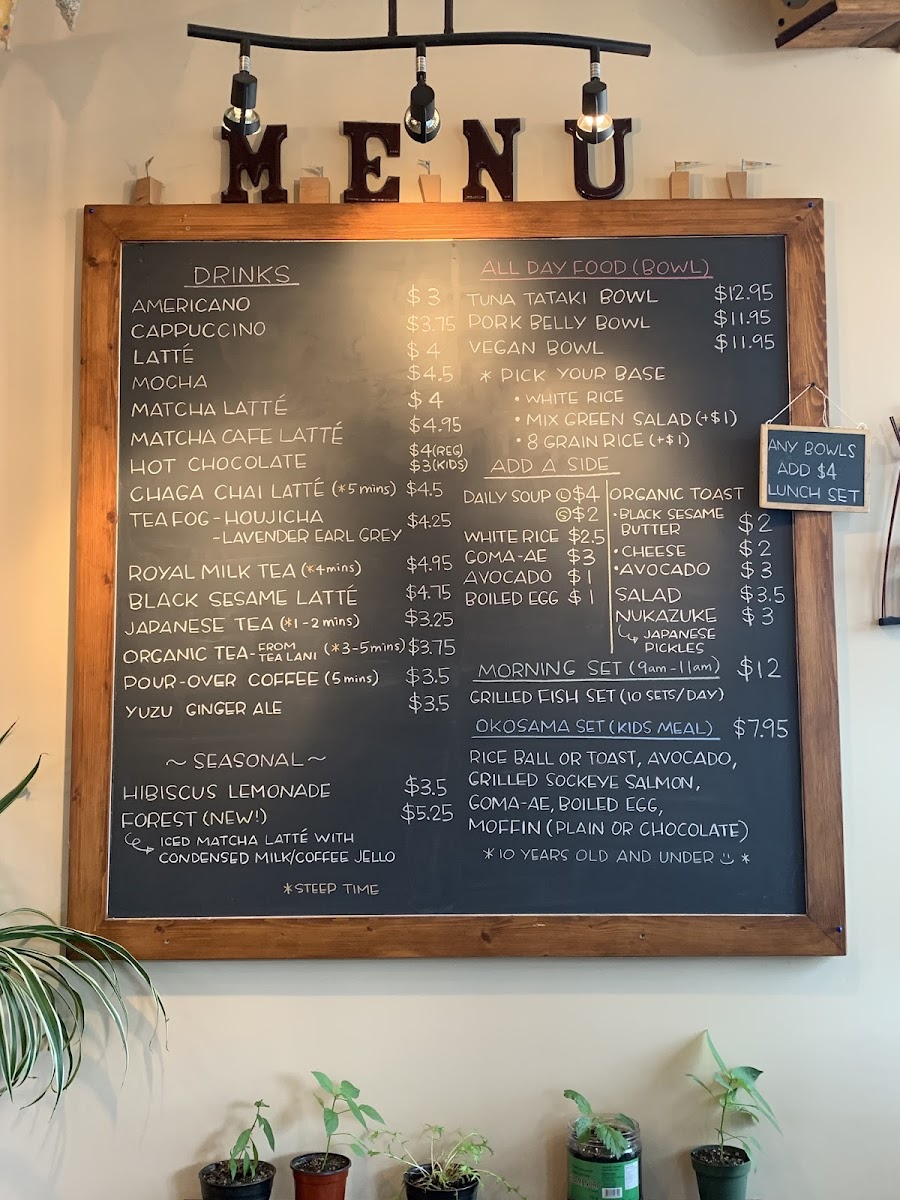 MENU
DRINKS
AMERICANO $3
CAPPUCCINO $3.75
LATTÉ $4
MOCHA $4.5
MATCHA LATTÉ $4
MATCHA CAFE LATTÉ $4.95
HOT CHOCOLATE $4(REG)
$3(KIDS)
CHAGA CHAI LATTÉ (*5mins) $4.5
TEA FOG - HOUJICHA $4.25
- LAVENDER EARL GREY
ROYAL MILK TEA (*4mins) $4.95
BLACK SESAME LATTÉ $4.75
JAPANESE TEA (*1-2mins) $3.25
ORGANIC TEA - FROM TEA LANI (*3-5mins) $3.75
POUR-OVER COFFEE (5mins) $3.5
YUZU GINGER ALE $3.5
~ SEASONAL ~
HIBISCUS LEMONADE $3.5
FOREST (NEW!) $5.25
ICED MATCHA LATTÉ WITH
CONDENSED MILK/COFFEE JELLO
*STEEP TIME
ALL DAY FOOD (BOWL)
TUNA TATAKI BOWL $12.95
PORK BELLY BOWL $11.95
VEGAN BOWL $11.95
* PICK YOUR BASE
• WHITE RICE
• MIX GREEN SALAD (+$1)
• 8 GRAIN RICE (+$1)
ADD A SIDE
DAILY SOUP Ⓛ $4
Ⓢ $2
WHITE RICE $2.5
GOMA-AE $3
AVOCADO $1
BOILED EGG $1
ORGANIC TOAST
• BLACK SESAME
BUTTER $2
• CHEESE $2
• AVOCADO $3
SALAD $3.5
NUKAZUKE $3
JAPANESE
PICKLES
MORNING SET (9am-11am) $12
GRILLED FISH SET (10 SETS/DAY)
OKOSAMA SET (KIDS MEAL) $7.95
RICE BALL OR TOAST, AVOCADO,
GRILLED SOCKEYE SALMON,
GOMA-AE, BOILED EGG,
MOFFIN (PLAIN OR CHOCOLATE)
*10 YEARS OLD AND UNDER *
ANY BOWLS
ADD $4
LUNCH SET